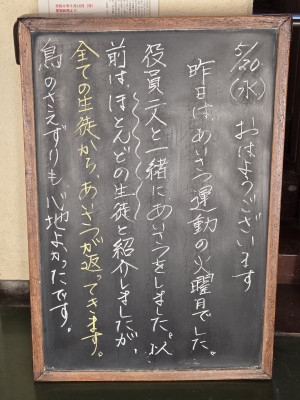 5/20(水) おはようございます
昨日は、あいさつ運動の火曜日でした。
役員二人と一緒にあいさつをしました。以
前は、ほとんどの生徒と紹介しましたが、
全ての生徒から、あいさつが返ってきます。
鳥のさえずりも心地よかったです。